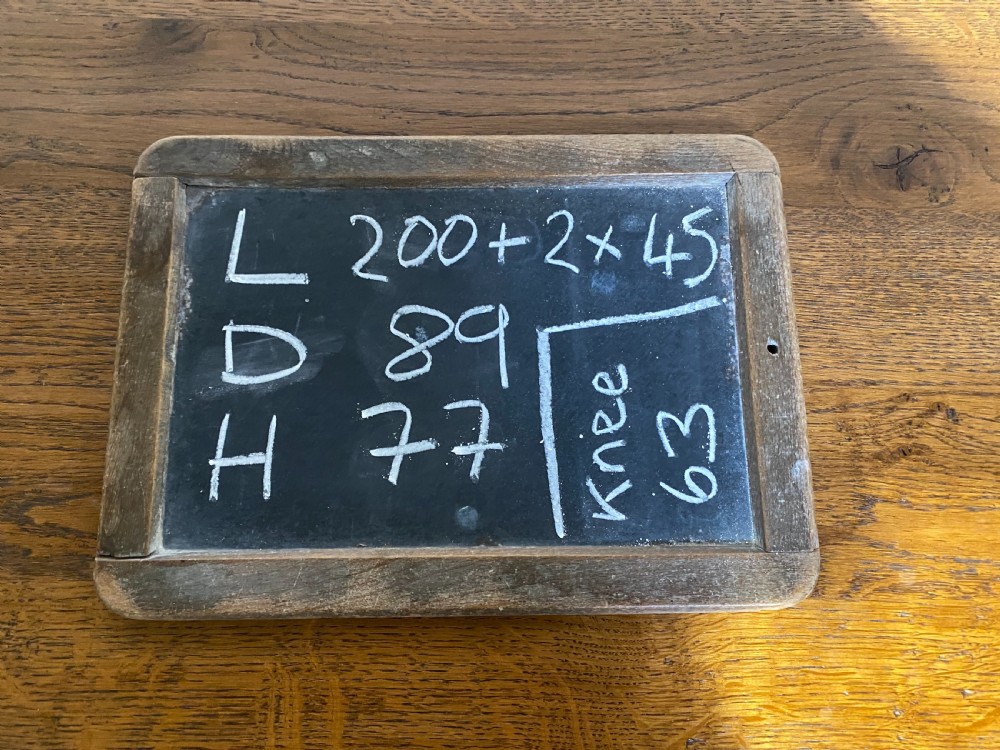 L 200+2x45
D 89
H 77
Knee
63